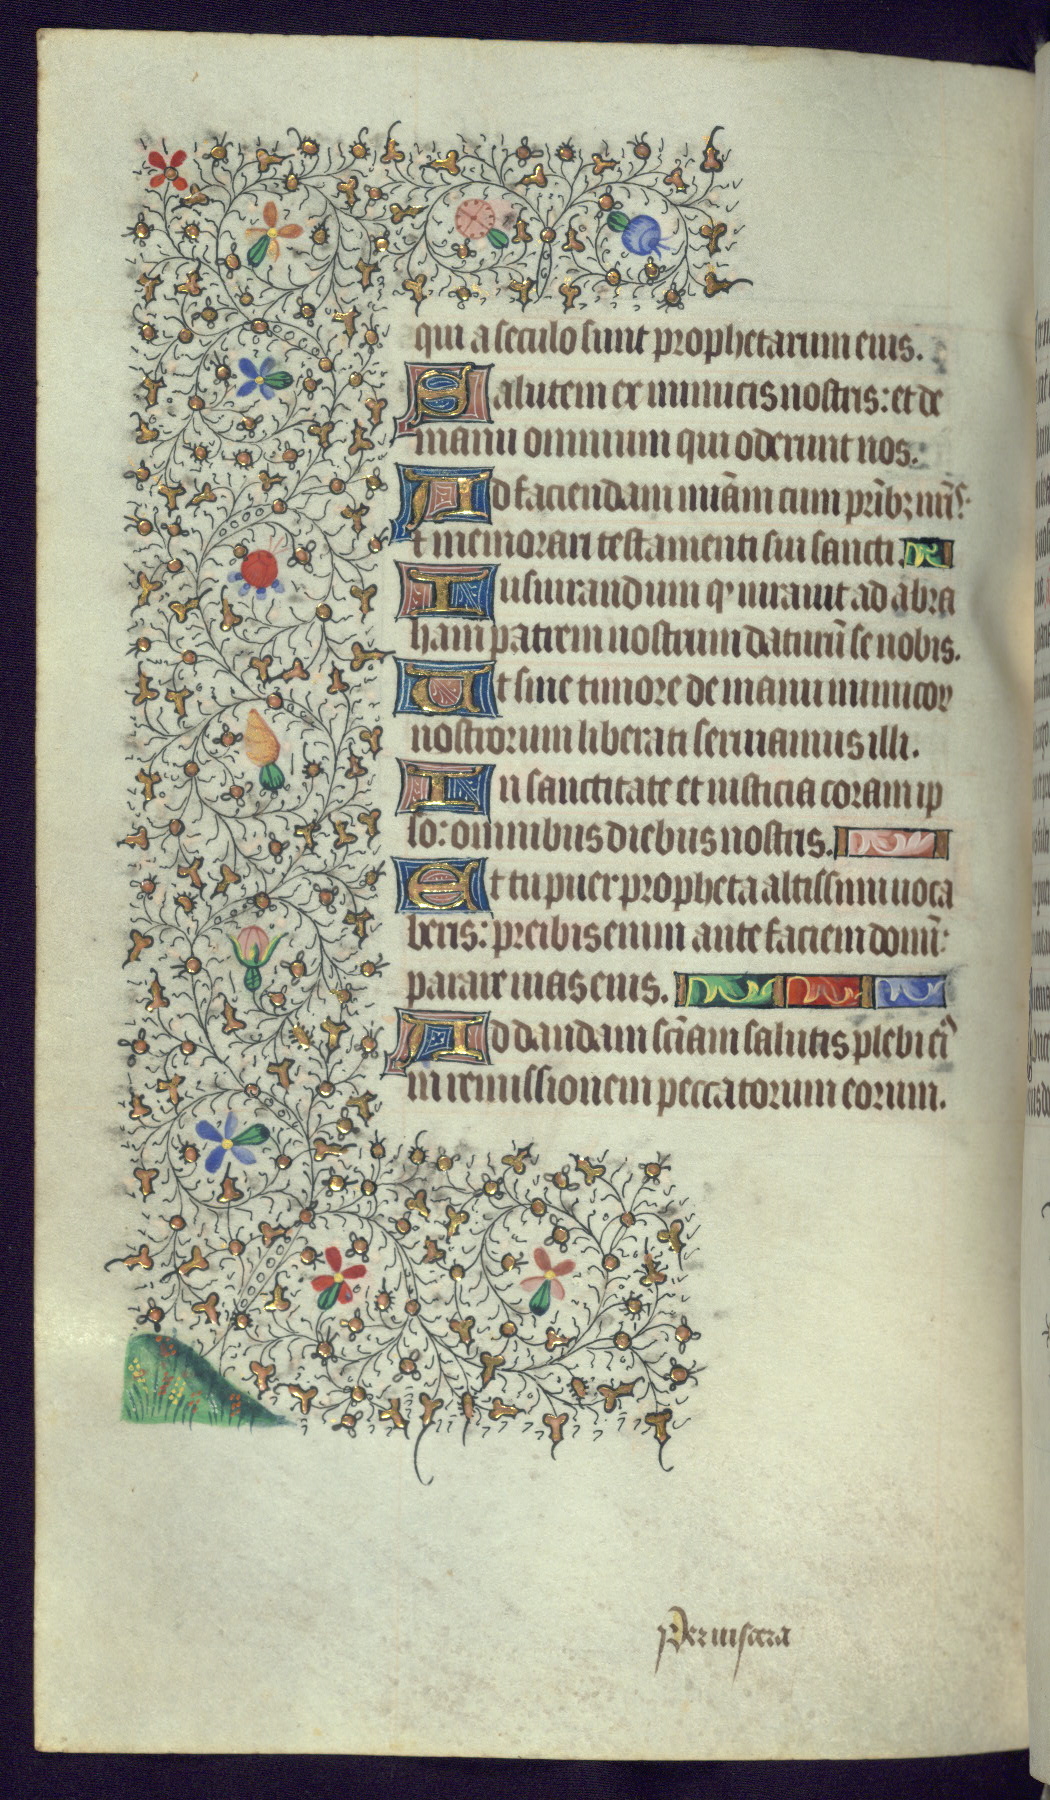 qui a seculo sunt prophetarum eius.
Salutem ex inimicis nostris: et de
manu omnium qui oderunt nos.
Ad faciendam mīam cum prībꝫ nr̄īs:
et memorari testamenti sui sancti.
Iusiurandum qͥ iurauit ad abra
ham patrem nostrum daturū se nobis.
Ut sine timore de manu inimicoꝝ
nostrorum liberati seruiamus illi.
In sanctitate et iusticia coram ip
so: omnibus diebus nostris.
Et tu puer propheta altissimi uoca
beris: preibis enim ante faciem domī:
parare uias eius.
Ad dandam sciam salutis plebi ei
in remissionem peccatorum eorum.
Per uiscera